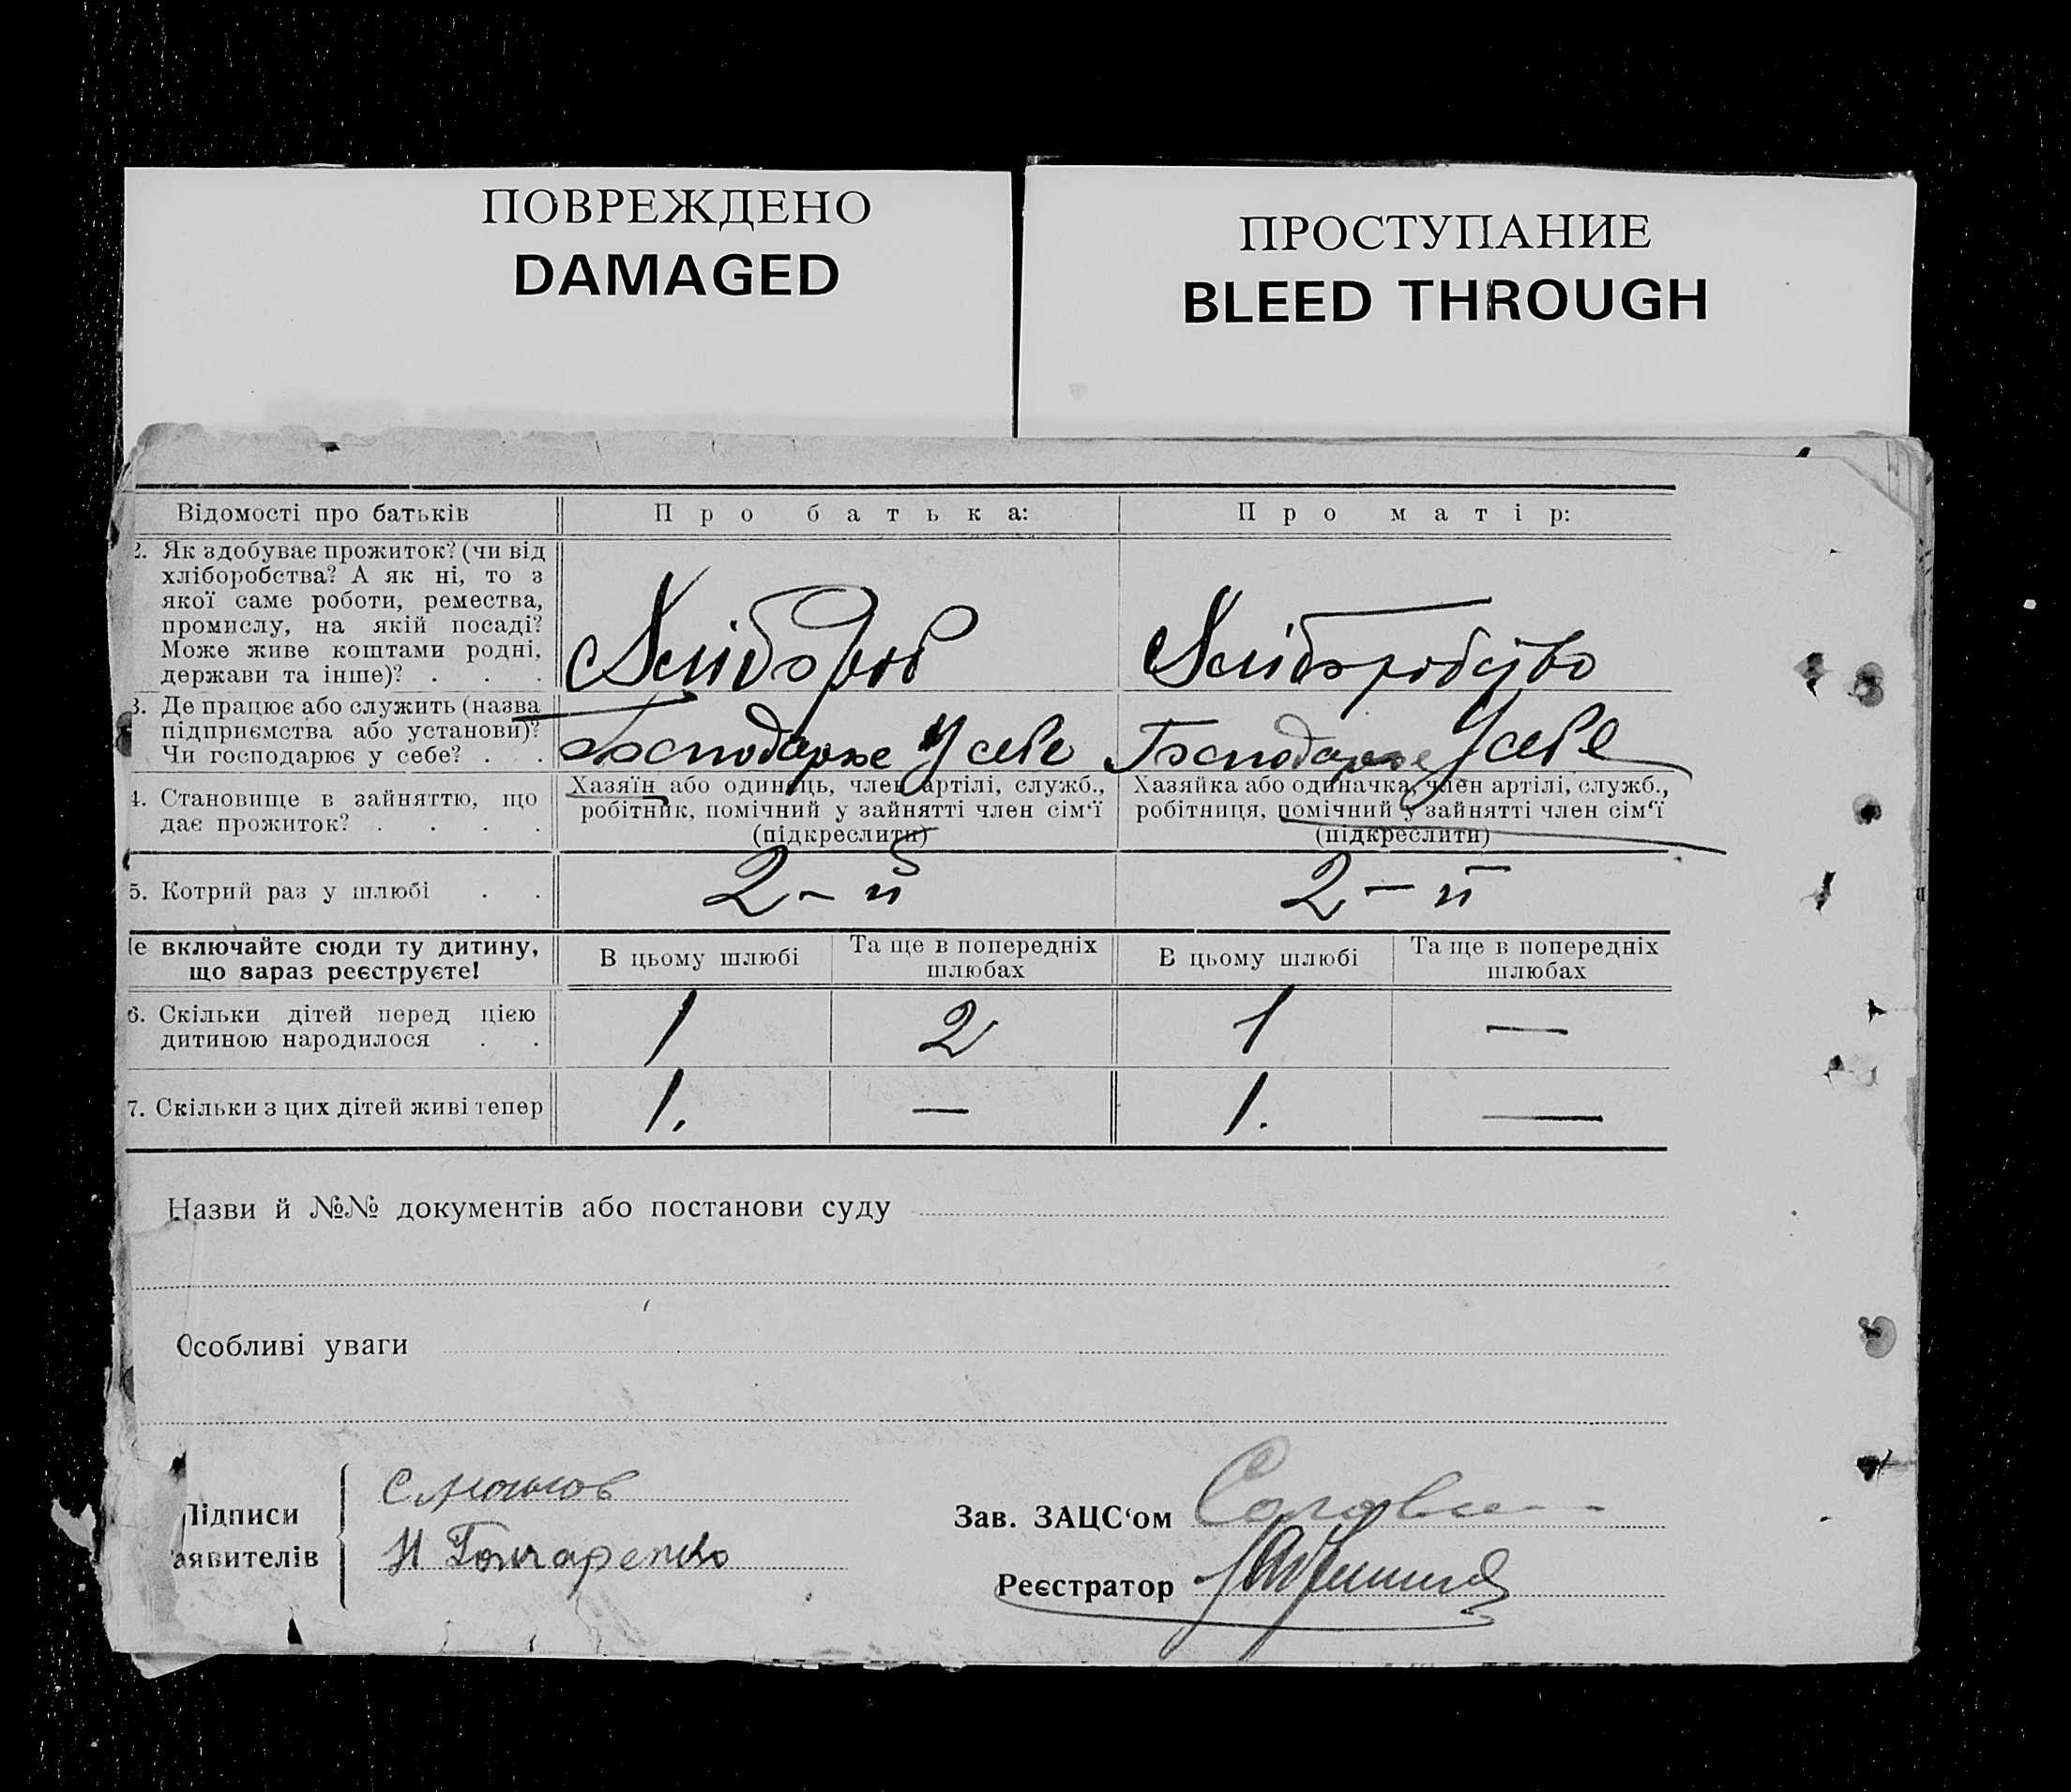 ПОВРЕЖДЕНО
DAMAGED
ПРОСТУПАНИЕ
BLEED THROUGH
Відомості про батьків
Про батька:
Про матір:
2. Як здобуває прожиток? (чи від
хліборобства? А як ні, то з
якої саме роботи, ремества,
промислу, на якій посаді?
Може живе коштами родні,
держави та інше)? . . .
Хлібороб
Хліборобство
3. Де працює або служить (назва
підприємства або установи)?
Чи господарює у себе? . .
Господарює У себе
Господарює У себе
4. Становище в зайняттю, що
дає прожиток? . . . .
Хазяїн або одинець, член артілі, служб.,
робітник, помічний у зайнятті член сім‘ї
(підкреслити)
Хазяйка або одиначка, член артілі, служб.,
робітниця, помічний у зайнятті член сім‘ї
(підкреслити)
5. Котрий раз у шлюбі . .
2 - й
2 - й
е включайте сюди ту дитину,
що зараз реєструєте!
В цьому шлюбі
Та ще в попередніх
шлюбах
В цьому шлюбі
Та ще в попередніх
шлюбах
6. Скільки дітей перед цією
дитиною народилося . .
1
2
1
—
7. Скільки з цих дітей живі тепер
1.
—
1.
—
Назви й №№ документів або постанови суду
Особливі уваги
Підписи
аявителів
Н Гончаренко
Зав. ЗАЦС‘ом
Реєстратор